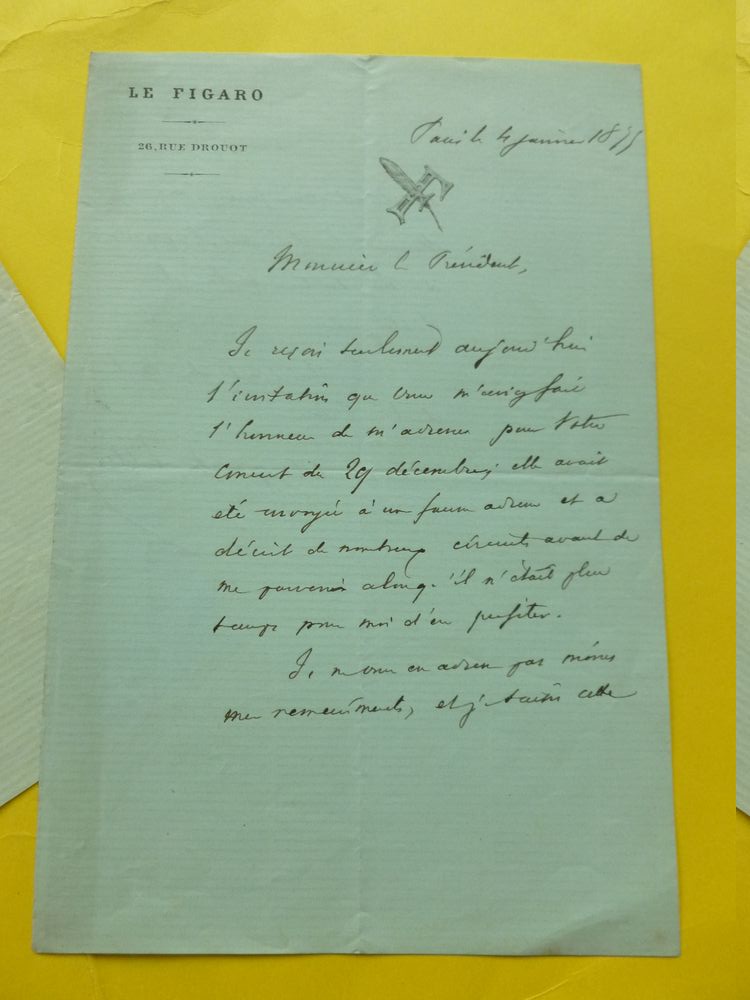 LE FIGARO
26, RUE DROUOT
Paris le 4 janvier 18
Monsieur le Président,
Je reçois seulement aujourd'hui
l'invitation que vous m'aviez fait
l'honneur de m'adresser pour Votre
concert du 29 décembre; elle avait
été envoyée à une fausse adresse et a
décrit de nombreux circuits avant de
me parvenir alors qu'il n'était plus
temps pour moi d'en profiter.
Je ne vous en adresse pas moins
mes remerciements, et je saisis cette